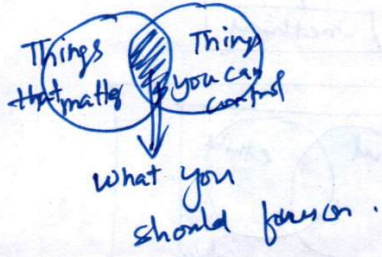 Things
that matter
Things
you can
control
what you
should focus on.